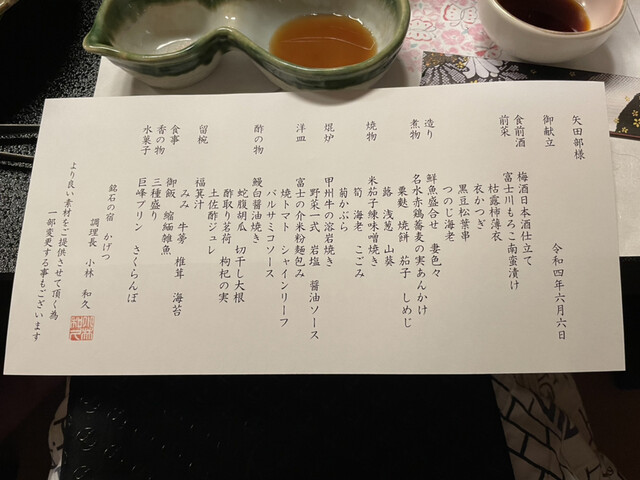 矢田部様
御献立　令和四年六月六日
食前酒　梅酒日本酒仕立て
前菜　富士川もろこ南蛮漬け
枯露柿薄衣
衣かつぎ
黒豆松葉串
つのじ海老
造り　鮮魚盛合せ　妻色々
煮物　名水赤鶏蕎麦の実あんかけ
粟麩　焼餅　茄子　しめじ
蕗　浅葱　山葵
焼物　米茄子練味噌焼き
筍　海老　こごみ
菊かぶら
焜炉　甲州牛の溶岩焼き
野菜一式　岩塩　醤油ソース
洋皿　富士の介米粉麺包み
焼トマト　シャインリーフ
バルサミコソース
酢の物　鰻白醤油焼き
蛇腹胡瓜　切干し大根
酢取り茗荷　枸杞の実
土佐酢ジュレ
留椀　福箕汁
みみ　牛蒡　椎茸　海苔
食事　御飯　縮緬雑魚
香の物　三種盛り
水菓子　巨峰プリン　さくらんぼ
銘石の宿　かげつ
調理長　小林　和久
より良い素材をご提供させて頂く為
一部変更する事もございます